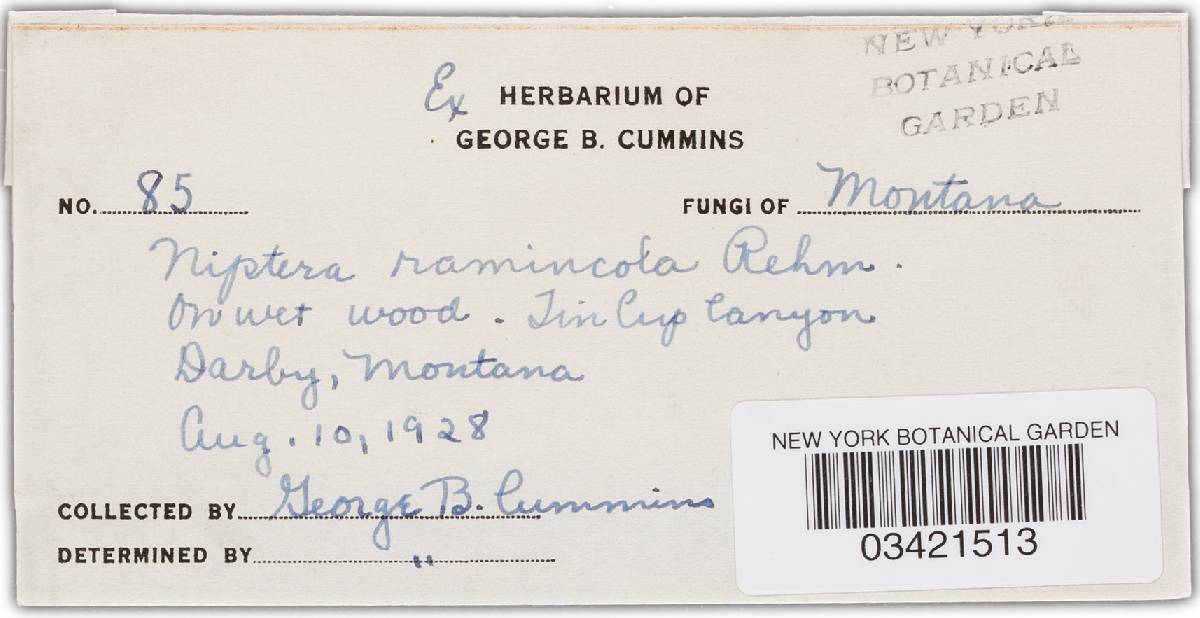 NEW YORK
BOTANICAL
GARDEN
Ex HERBARIUM OF
GEORGE B. CUMMINS
NO. 85
FUNGI OF Montana
Niptera ramincola Rehm.
On wet wood. Tin Cup Canyon
Darby, Montana
Aug. 10, 1928
COLLECTED BY George B. Cummins
DETERMINED BY "
NEW YORK BOTANICAL GARDEN
03421513